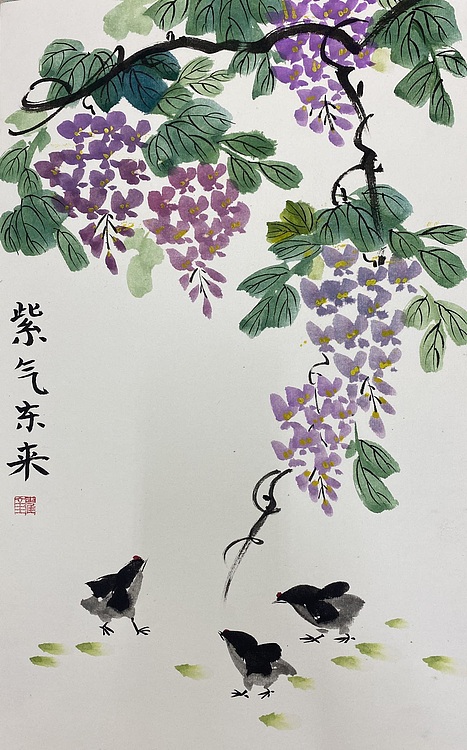 紫气东来